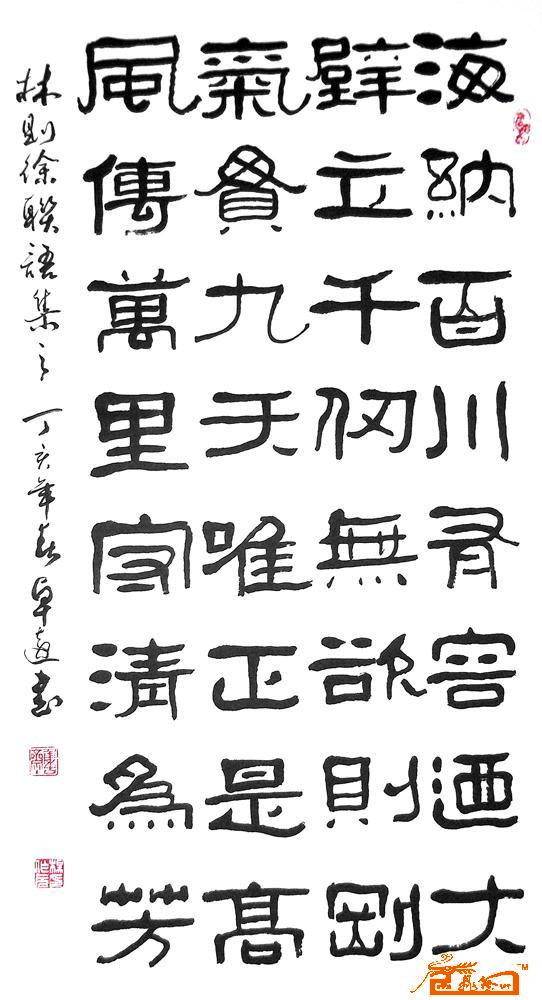 海納百川有容迺大
壁立千仞無欲則剛
氣貫九天唯正是高
風傳萬里守清為芳
林則徐聯語集之 丁亥年春卓遠書